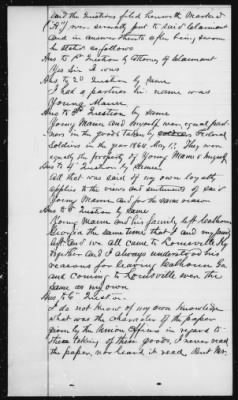 and the Questions filed herewith Marked
"B" were severally put to said Claimant
and in answer thereto after being sworn
he states as follows
Ans to 1st Question by Attorney of Claimant
Yes Sir I was
Ans to 2d Question by same
I had a partner his name was
Young Mauer
Ans to 3d Question by same
Young Mauer and myself were equal part-
ners in the goods taken by Federal
Soldiers in the year 1864 They were
equally the property of Young Mauer & myself
Ans to 4th Question by same
All that was said of my own loyalty
applies to the views and sentiments of said
Young Mauer and for the same reason
Ans to 5th Question by same
Young Mauer and his family left Calhoun
Georgia the same time that I and my family
left and we all came to Louisville Ky
together and I always understood his
reasons for leaving Calhoun Ga
and coming to Louisville were the
same as my own
Ans to 6th Question
I do not know of my own knowledge
what was the character of the paper
given by the Union Officers in regard to
the taking of these goods, I never read
the paper, nor heard it read. But Mr.